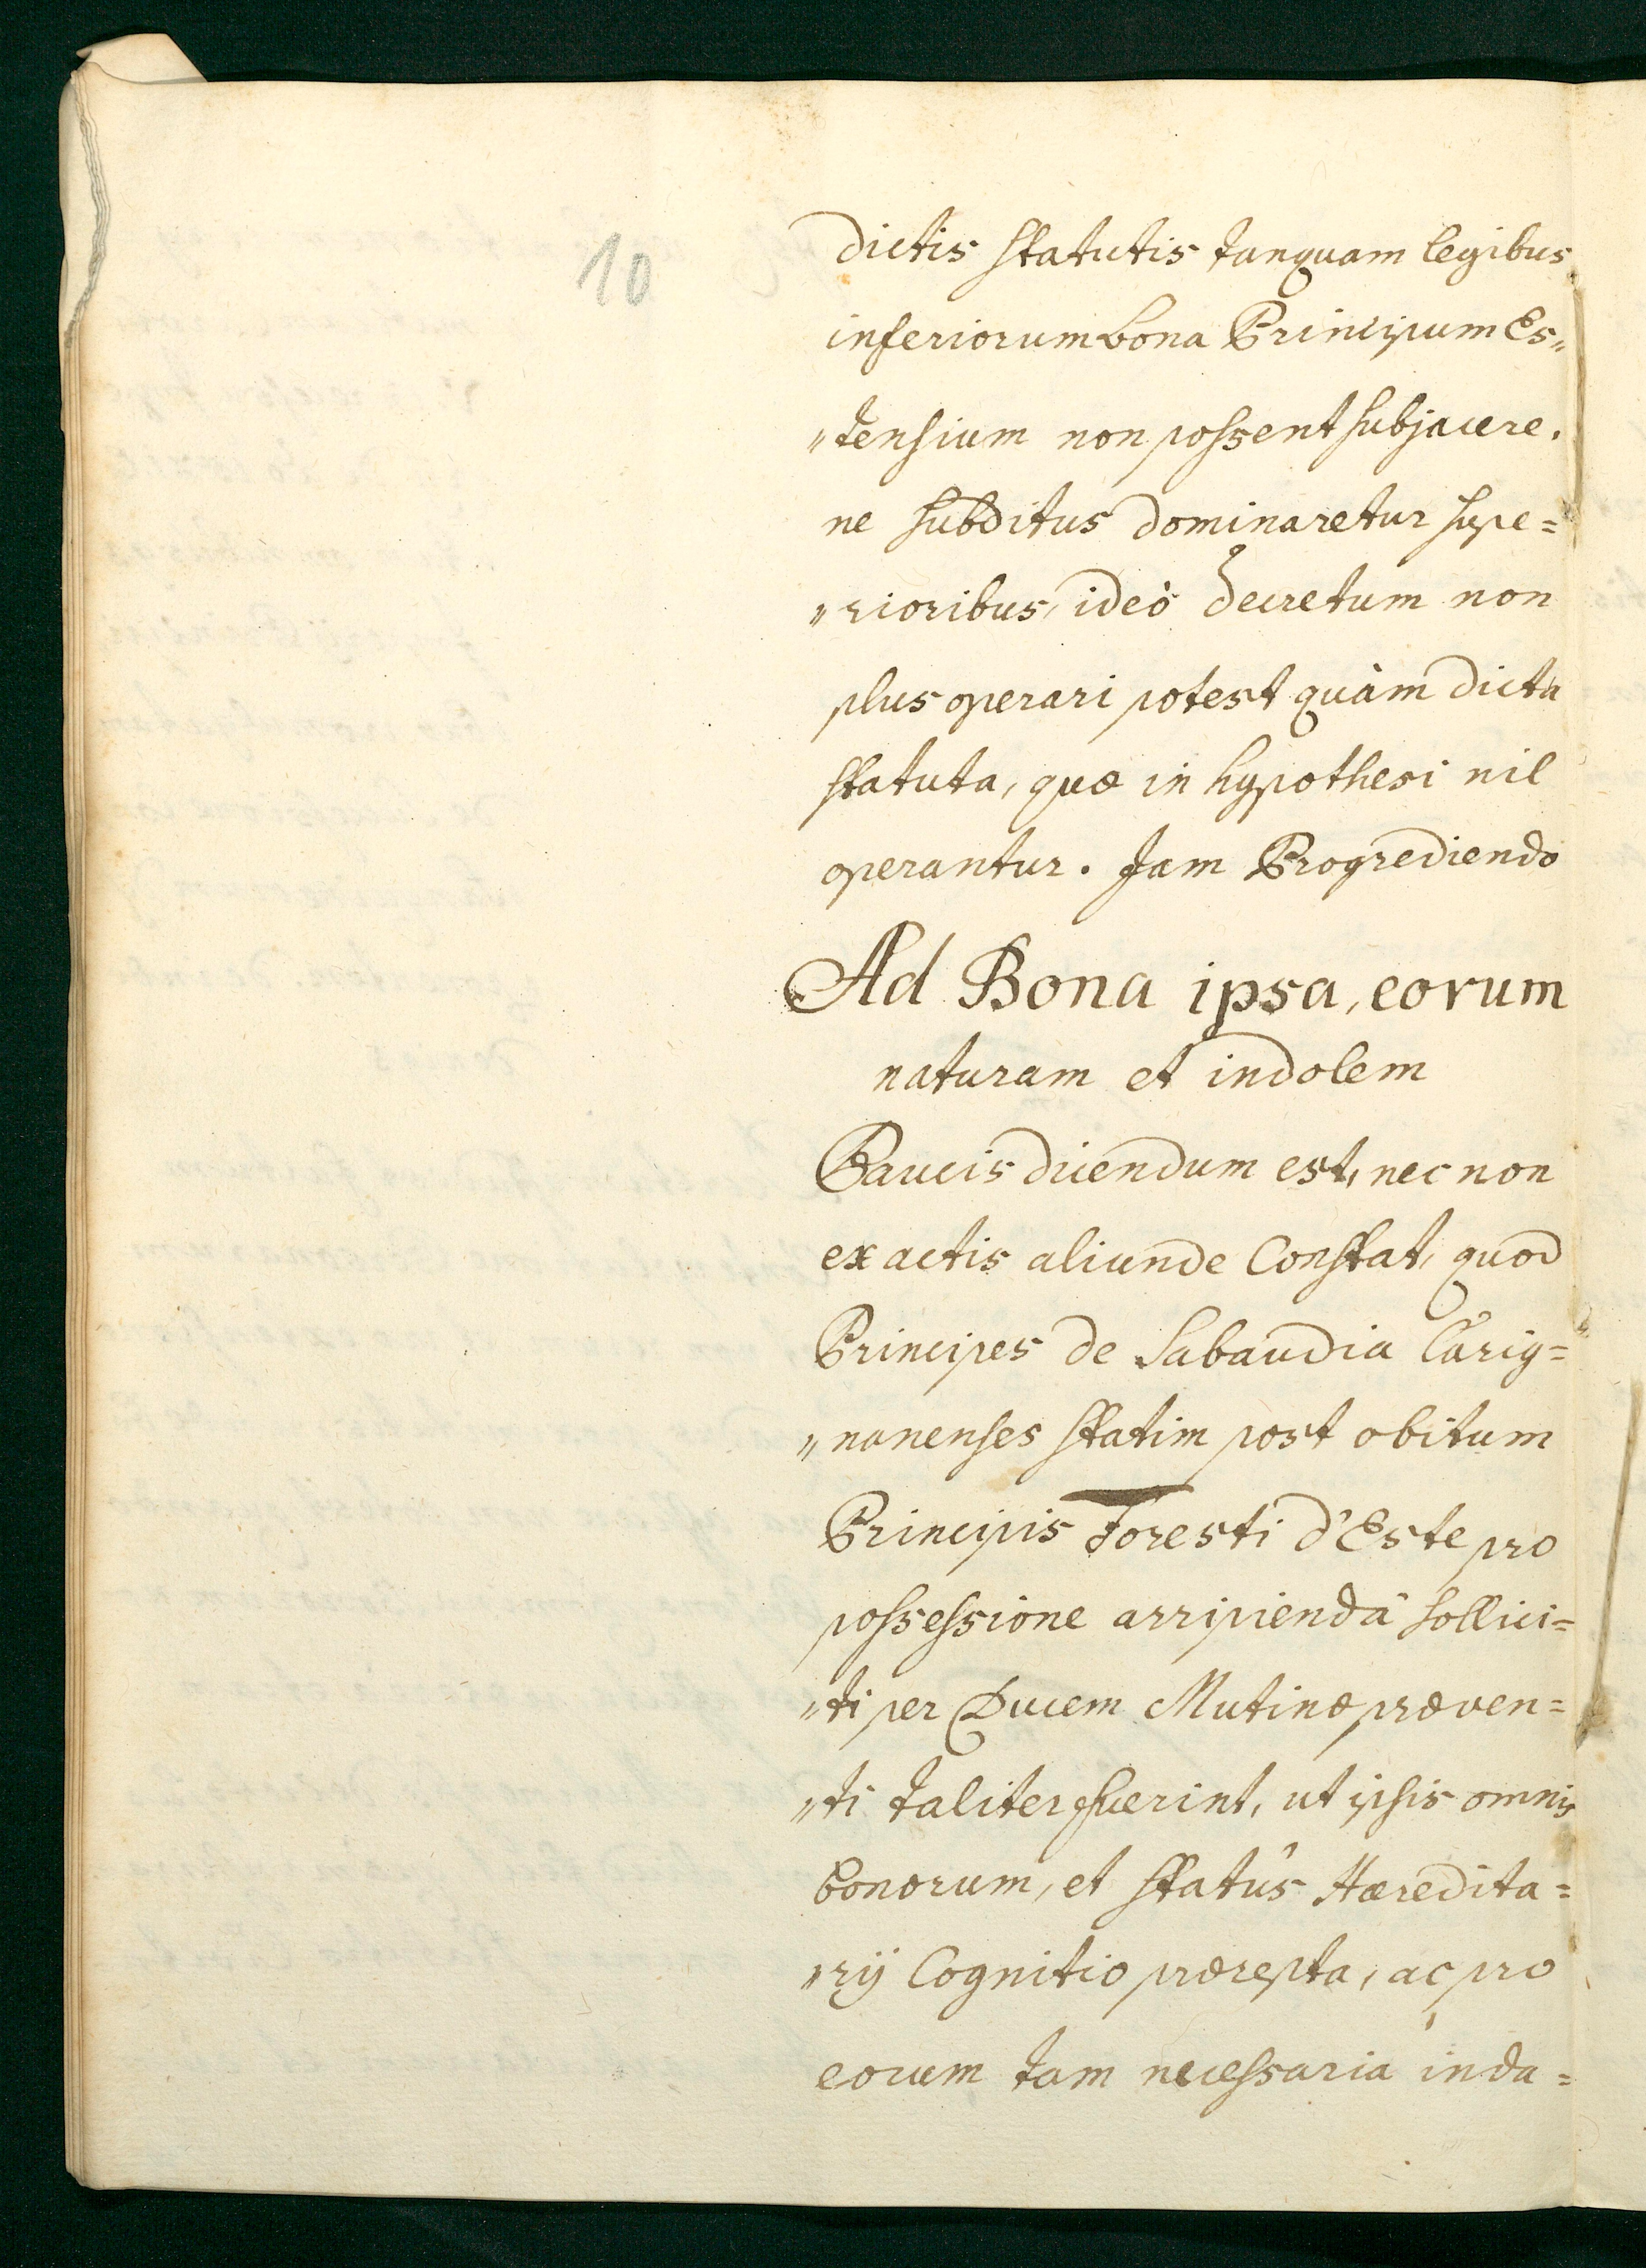 10
dictis statutis tanquam legibus
inferiorum bona Principum Es„
„tensium non possent subjacere,
ne subditus dominaretur supe=
„rioribus, ideò decretum non
plus operari potest quàm dicta
statuta, quæ in hypothesi nil
operantur. Jam Progrediendo
Ad Bona ipsa, eorum
naturam et indolem
Paucis dicendum est, nec non
ex actis aliunde Constat, quod
Principes de Sabaudia Carig=
„nanenses statim post obitum
Principis Foresti d'Este pro
possessione arripiendâ sollici=
„ti per Ducem Mutinæ præven=
„ti taliter fuerint, ut ipsis omnis
bonorum, et statûs Hæredita=
„rij Cognitio prærepta, ac pro
eorum tam necessaria inda=